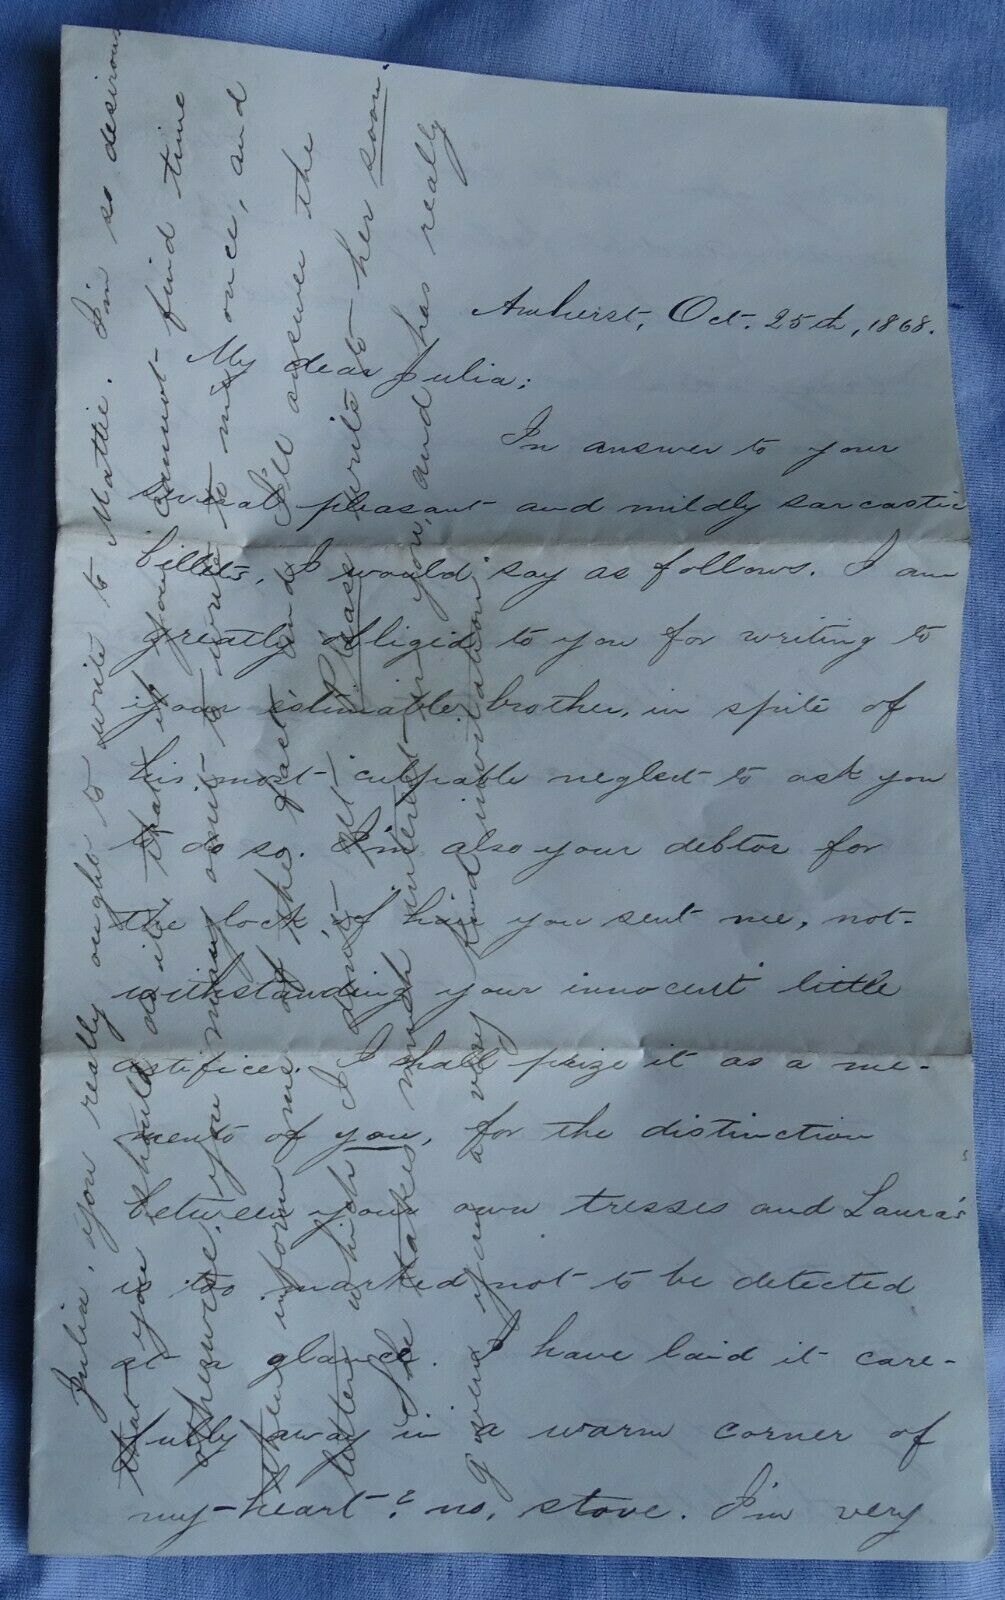 Amherst, Oct. 25th, 1868.
My dear Julia;
In answer to your
several pleasant and mildly sarcastic
billets, I would say as follows. I am
greatly obliged to you for writing to
your estimable brother, in spite of
his most culpable neglect to ask you
to do so. I'm also your debtor for
the lock of hair you sent me, not-
withstanding your innocent little
artifices. I shall prize it as a me-
mento of you, for the distinction
between your own tresses and Laura's
is too marked not to be detected
at a glance. I have laid it care-
fully away in a warm corner of
my-heart? no, stove. I'm very
Julia, you really ought to write to Mattie. I'm so desirous
that you should do it, that if you cannot find time
otherwise, you may omit to write to me once, and
then inform me of the fact and I'll answer the
letter which I don't get. Please write to her soon.
She takes much interest in you, and has really
given you a very kind invitation